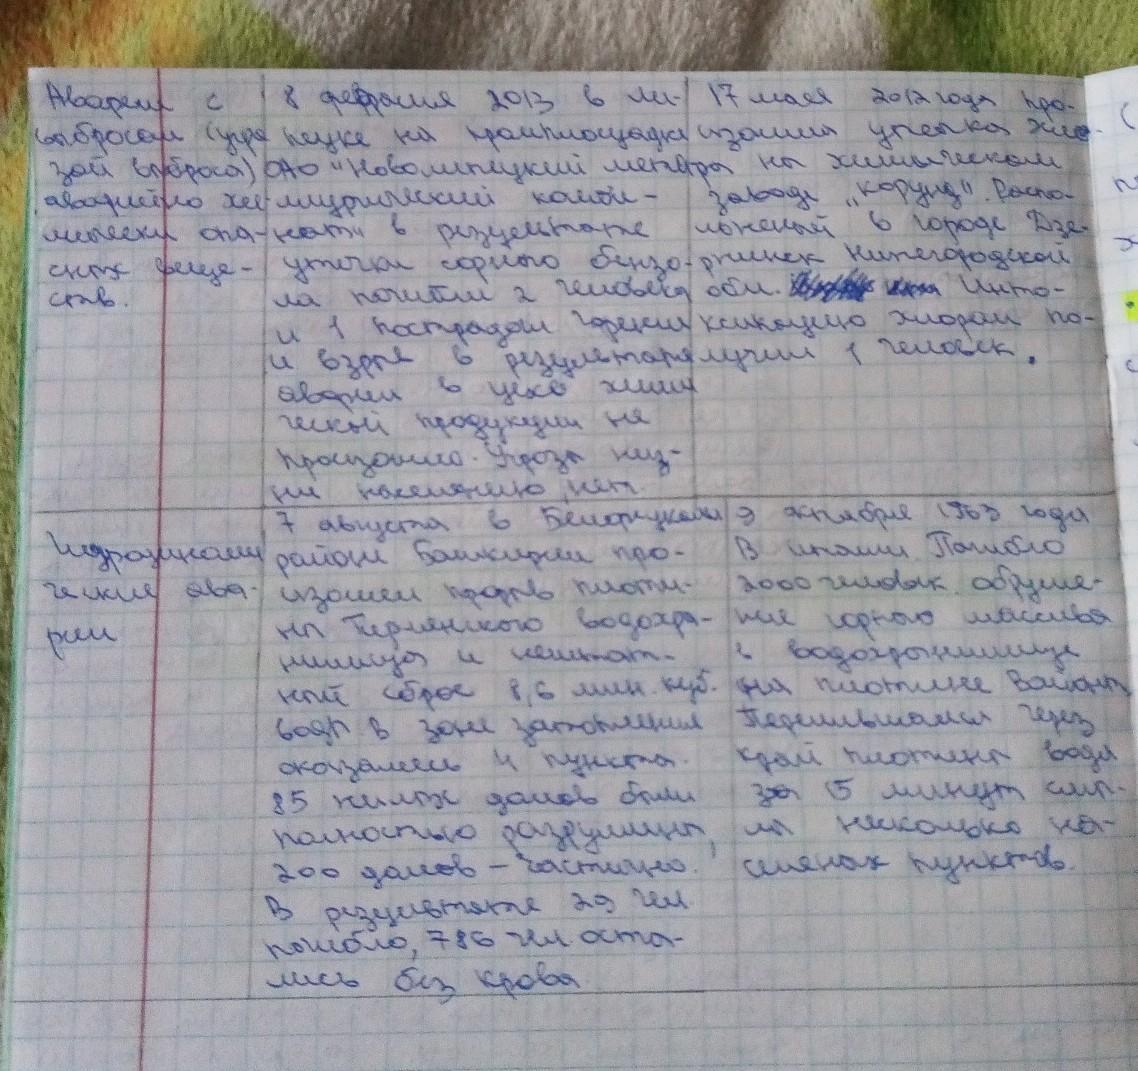 Аварии с
выбросом (угро
зой выброса)
аварийно хи
мически опа-
сных веще-
ств.
8 февраля 2013 в Ли-
пецке на промплощадке
ОАО "Новолипецкий метал
лургический комби-
нат" в результате
утечки сырого бензо-
ла погибли 2 человека
и 1 пострадал горения
и взрыв в результате
аварии в цехе хими
ческой продукции не
произошло. Угрозы жиз-
ни населению нет.
17 мая 2012 года про-
изошла утечка хло-
ра на химическом
заводе „корунд". Распо-
ложеный в городе Дзе-
ржинск Нижегородской
обл. Инто-
ксикацию хлором по-
лучил 1 человек.
Гидродинами
ческие ава-
рии
7 августа в Белорецком
районе Башкирии про-
изошел прорыв плоти-
ны Тирлянского водохра-
нилища и нештат-
ный сброс 8,6 млн. куб.
воды в зоне затопления
оказались 4 пункта.
85 жилых домов были
полностью разрушены,
200 домов – частично.
В результате 29 чел
погибло, 786 чел. оста-
лись без крова
9 октября 1963 года
В итали. Погибло
2000 человек. обруше-
ние горного массива
в водохранилище
на плотине Вайонт
Перелившаяся через
край плотины вода
за 15 минут смы-
ла несколько на-
селеных пунктов.